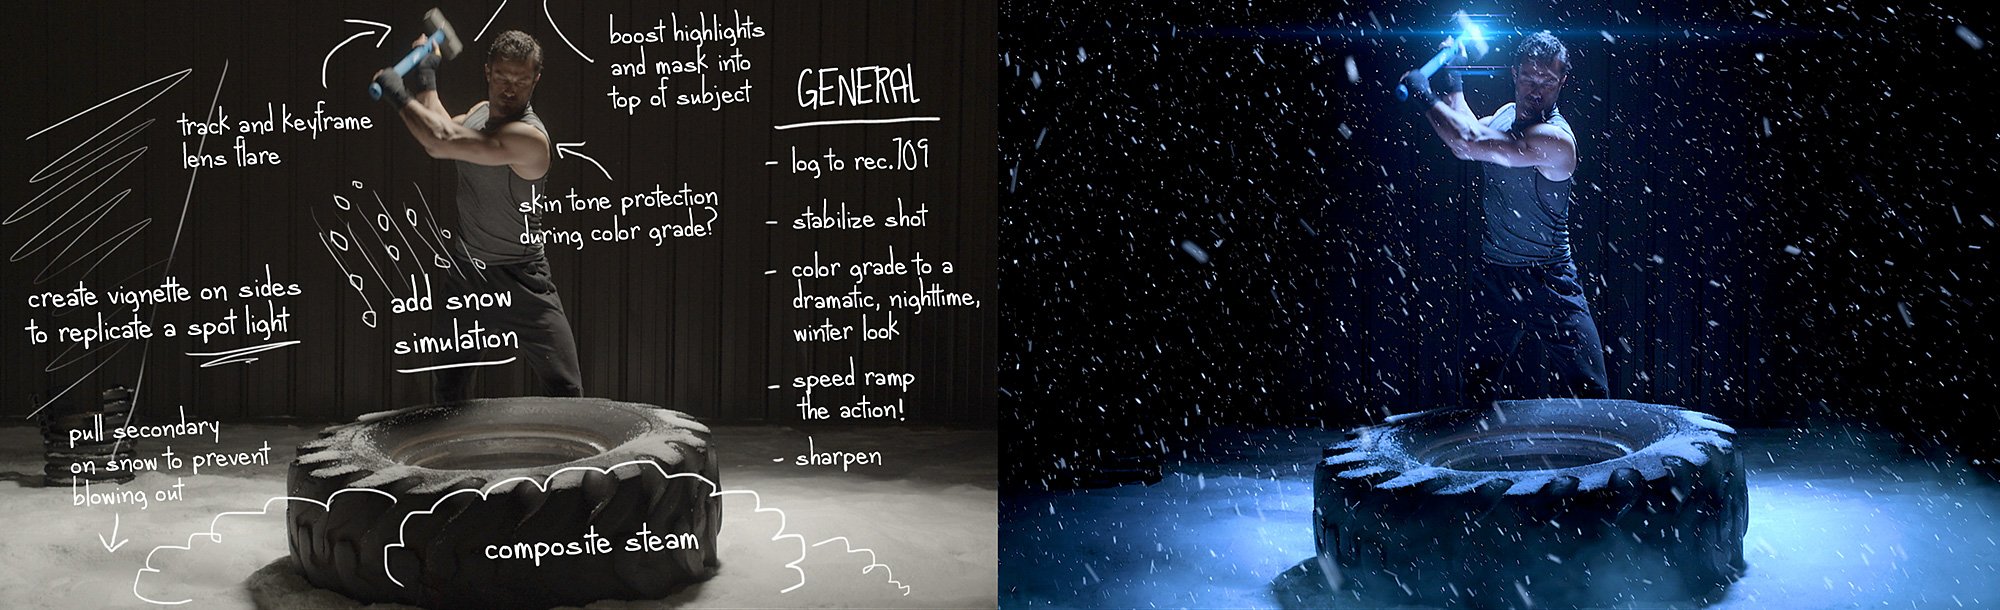 boost highlights
and mask into
top of subject
track and keyframe
lens flare
skin tone protection
during color grade?
create vignette on sides
to replicate a spot light
add snow
simulation
pull secondary
on snow to prevent
blowing out
composite steam
GENERAL
- log to rec.709
- stabilize shot
- color grade to a
dramatic, nighttime,
winter look
- speed ramp
the action!
- sharpen